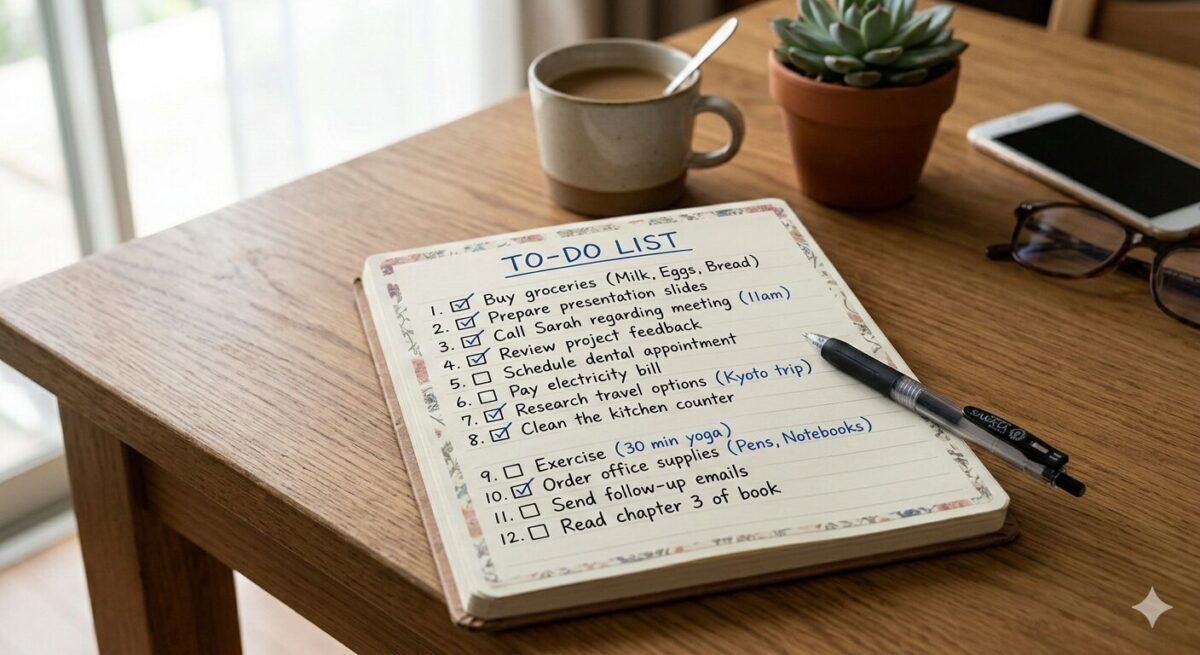 TO-DO LIST
1. ☑ Buy groceries (Milk, Eggs, Bread)
2. ☑ Prepare presentation slides
3. ☑ Call Sarah regarding meeting (11am)
4. ☑ Review project feedback
5. ☐ Schedule dental appointment
6. ☐ Pay electricity bill
7. ☑ Research travel options (Kyoto trip)
8. ☑ Clean the kitchen counter
9. ☐ Exercise (30 min yoga)
10. ☑ Order office supplies (Pens, Notebooks)
11. ☐ Send follow-up emails
12. ☐ Read chapter 3 of book